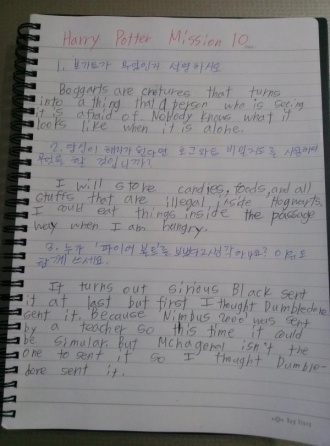 Harry Potter Mission 10
1. 보가트가 무엇인지 설명하시오
Boggarts are cretures that turns
into a thing that a person who is seeing
it is afraid of. Nobody knows what it
looks like when it is alone.
2. 당신이 해리가 된다면 호그와트 비밀지도를 사용하여
무엇을 할 것입니까?
I will store candies, foods, and all
stuffs that are illegal inside Hogwarts.
I could eat things inside the passage
way when I am hungry.
3. 누가 '파이어 볼트'를 보냈다고 생각하나요?
함께 쓰세요.
It turns out sirious Black sent
it at last but first I thought Dumbledore
sent it. Because Nimbus 2000 was sent
by a teacher so this time it could
be simular. But Mchagonal isn't the
one to sent it so I thought Dumble-
dore sent it.